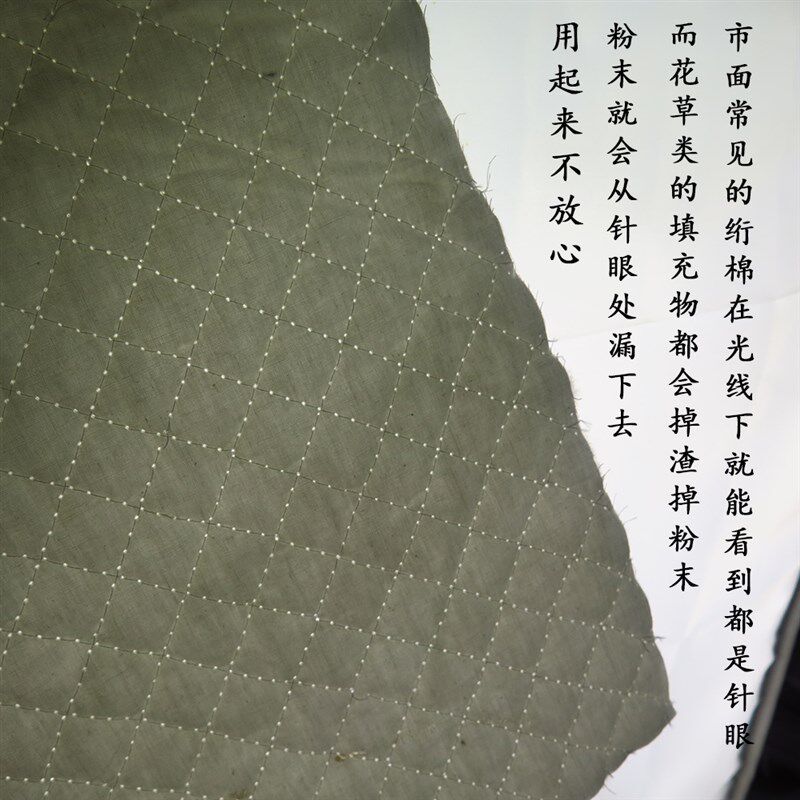 市面常见的绗棉在光线下就能看到都是针眼
而花草类的填充物都会掉渣掉粉末
粉末就会从针眼处漏下去
用起来不放心